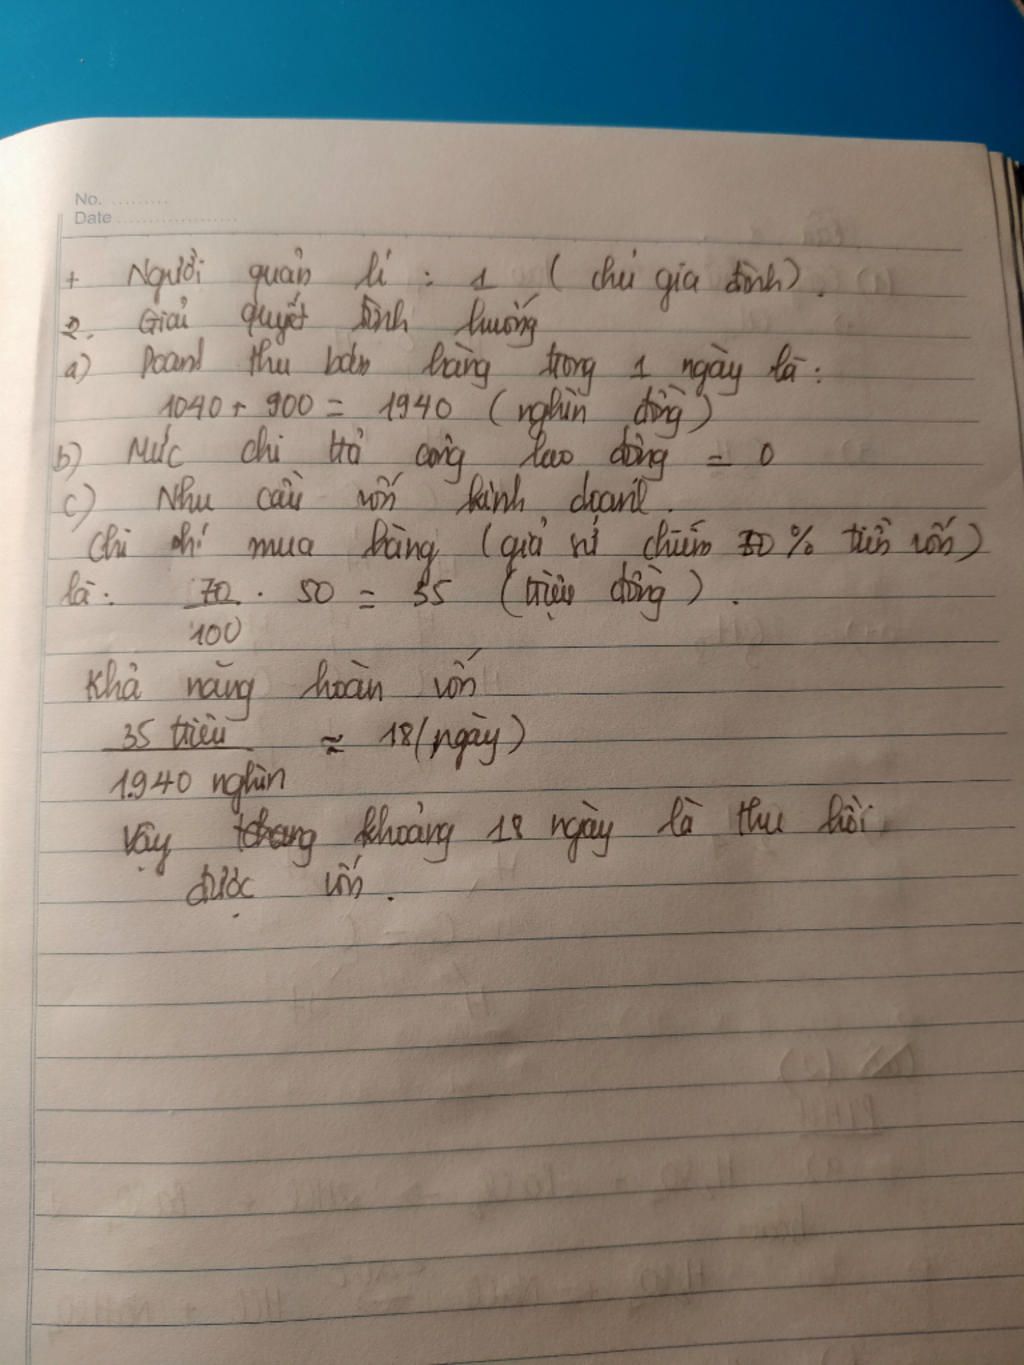 No. .........
Date ...................
+ Người quản lí : 1 ( chủ gia đình ) .
2. Giải quyết tình huống
a) Doanh thu bán hàng trong 1 ngày là :
1040 + 900 = 1940 ( nghìn đồng )
b) Mức chi trả công lao động = 0
c) Nhu cầu vốn kinh doanh .
Chi phí mua hàng ( giả sử chiếm 70 % tiền vốn )
là : 70/100 . 50 = 35 ( triệu đồng ) .
Khả năng hoàn vốn
35 triệu / 1.940 nghìn ≈ 18 ( ngày )
Vậy khoảng 18 ngày là thu hồi
được vốn .